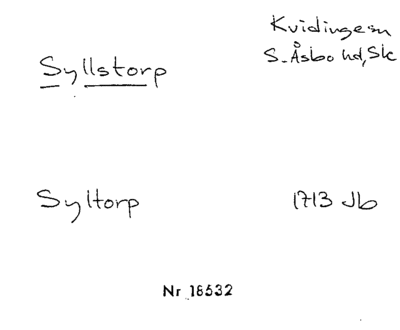 Kvidinge sn
S. Åsbo hd, Sk
Syllstorp
Syltorp 1713 Jb
Nr 18532